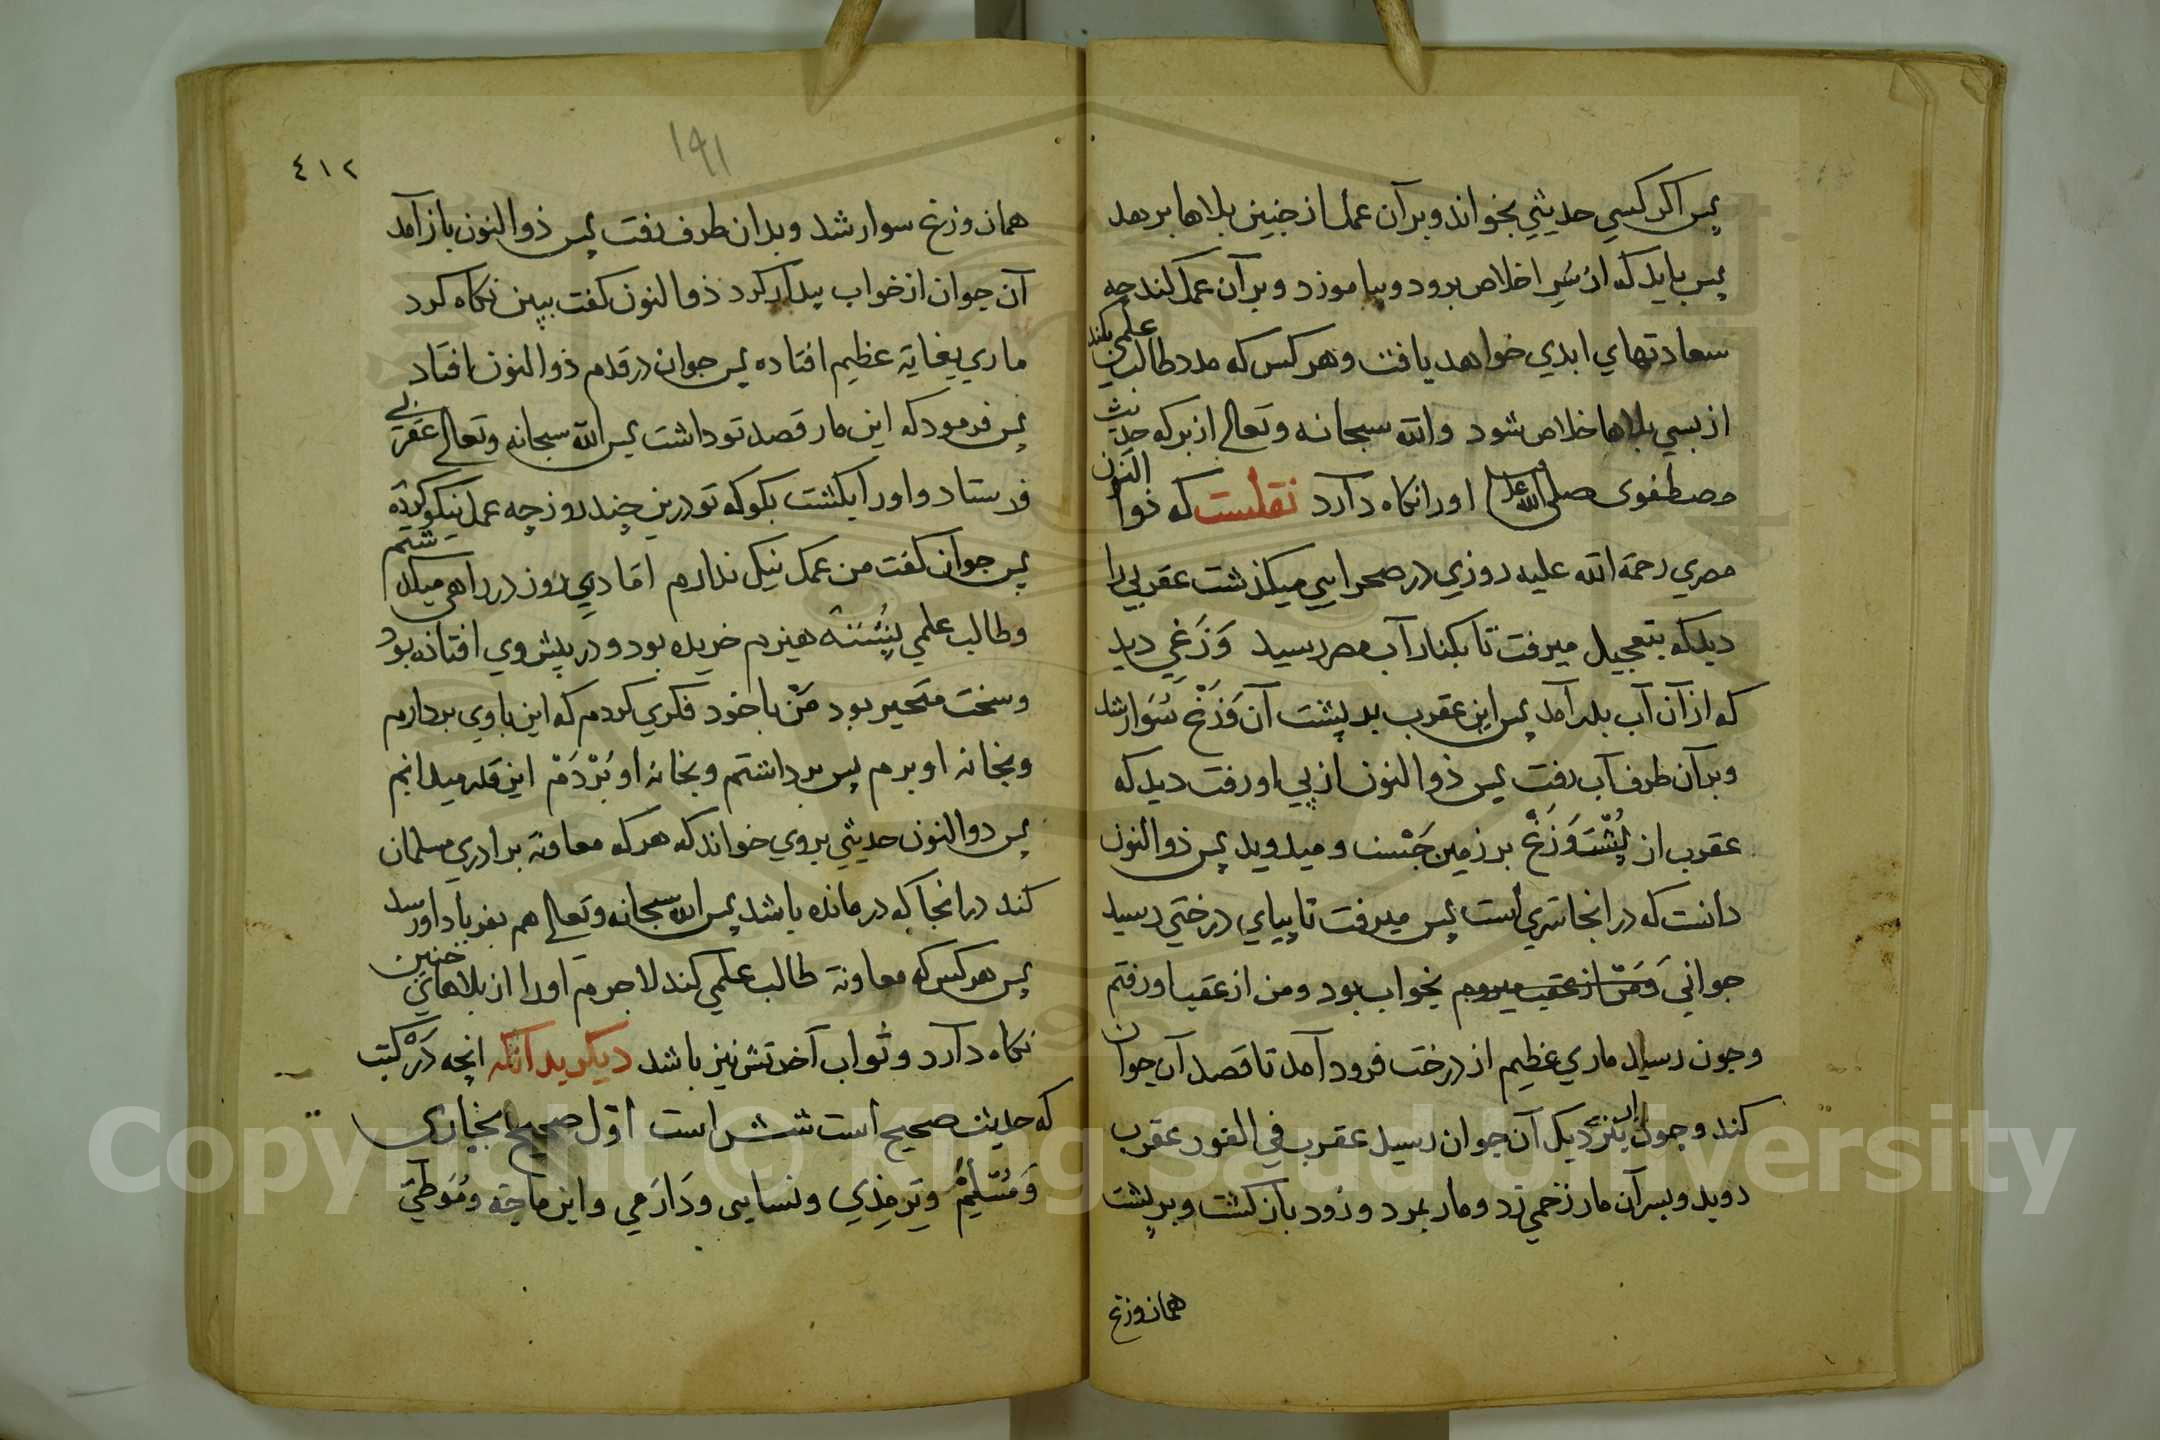 پس اکر کسی حدیثی بخواند و برآن عمل از جنین بلاها برهد
پس باید که از سر اخلاص برود وبیاموزد وبرآن عمل کند چه
سعادتهای ابدی خواهد یافت وهرکس که مدد طالب علمی بکند
از بسی بلاها خلاص شود والله سبحانه وتعالی از برکه حدیث
مصطفوی صلی الله علیه اورا نکاه دارد نقلست که ذوا النون
مصری رحمة الله علیه روزی در صحرایی میکذشت عقربی را
دیدکه بتعجیل میرفت تا بکنار آب مصر رسید وَزَغی دید
که از آن آب بدر آمد پس این عقرب بر پشت آن وَزَغ سُوار شد
وبرآن طرف آب رفت پس ذوالنون از پی او رفت دید که
عقرب از پُشْت وَزَغ بر زمین جَسْت و میدوید پس ذوالنون
دانست که در انجا سَری است پس میرفت تا بپای درختی رسید
جوانی وَمَنْ از عقب میروم بخواب بود ومن از عقب او رفتم
وجون رسید ماری عظیم از درخت فرود آمد تا قصد آن جوان
کند وجون بنزدیک آن جوان رسید عقرب فی الفور عقرب
دوید وبسر آن مار زخمی زد و مار بمرد وزود باز کشت وبر پشت
همان وزغ
٤١٢
١٩١
همان وزغ سوار شد وبدان طرف رفت پس ذوالنون باز آمد
آن جوان از خواب بیدار کرد ذوالنون کفت ببین نکاه کرد
ماری بغایة عظیم افتاده پس جوان در قدم ذوالنون افتاد
پس فرمود که این مار قصد تو داشت پس الله سبحانه وتعالی عقربی
فرستاد و اورا بکشت بکو که تو درین چند روز چه عمل نیکو کردۀ
پس جوان کفت من عمل نیک ندارم اما دی روز در راهی میکذشتم
وطالب علمی پُشتَنۀ هیزم خریده بود و در پیش وی افتاده بود
وسخت متحیر بود مَنْ باخود فکری کردم که این باوی بردارم
وبخانه او برم پس برداشتم وبخانه او بُرْدَمْ این قدر میدانم
پس ذوالنون حدیثی بروی خواند که هرکه معاونة برادری مسلمان
کند در انجا که درمانده باشد پس الله سبحانه وتعالی هم بفریاد او رسد
پس هرکس که معاونة طالب علمی کند لاجرم اورا از بلاهای جنین
نکاه دارد وثواب آخرتش نیز باشد دیکر بدانکه انچه دَرْ کتب
که حدیث صحیح است شش است اوّل صحیح بخاری
وَمُسْلِمْ وتِرمِذِی ونسایی ودَارَمی وابن ماجَه ومُوَطَّی
Copyright © King Saud University